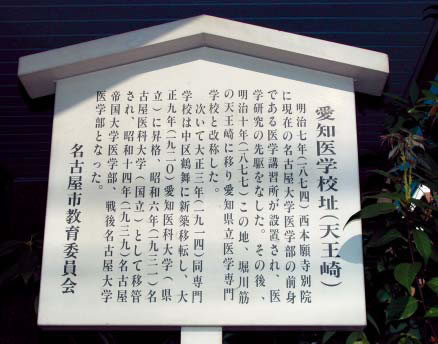 愛知医学校址(天王崎)
明治七年(一八七四)西本願寺別院
に現在の名古屋大学医学部の前身
である医学講習所が設置され、医
学研究の先駆をなした。その後、
明治十年(一八七七)この地、堀川筋
の天王崎に移り愛知県立医学専門
学校と改称した。
次いで大正三年(一九一四)同専門
学校は中区鶴舞に新築移転し、大
正九年(一九二〇)愛知医科大学(県
立)に昇格、昭和六年(一九三一)名
古屋医科大学(国立)として移管
され、昭和十四年(一九三九)名古屋
帝国大学医学部、戦後名古屋大学
医学部となった。
名古屋市教育委員会